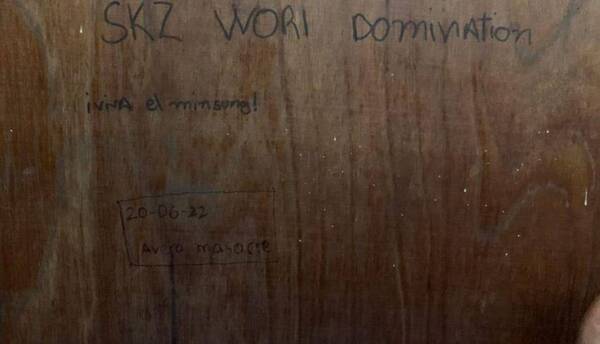 SKZ WORl DOMiNATiON
¡ViVA el minsung!
20-06-22
masacre